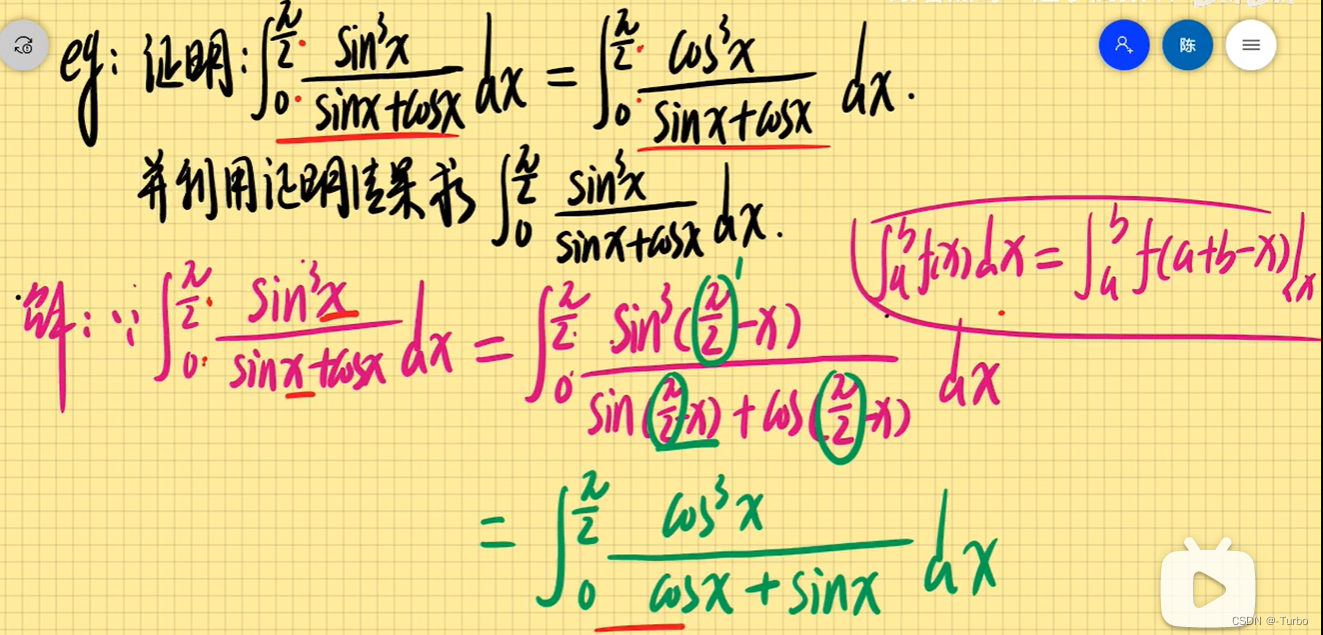 陈
eg: 证明: ∫₀^{π/2} sin³x/(sinx+cosx) dx = ∫₀^{π/2} cos³x/(sinx+cosx) dx.
并利用证明结果求 ∫₀^{π/2} sin³x/(sinx+cosx) dx.
∫ₐᵇ f(x)dx = ∫ₐᵇ f(a+b-x)dx
解: ∵ ∫₀^{π/2} sin³x/(sinx+cosx) dx = ∫₀^{π/2} sin³(π/2-x)/(sin(π/2-x)+cos(π/2-x)) dx
= ∫₀^{π/2} cos³x/(cosx+sinx) dx
CSDN @-Turbo